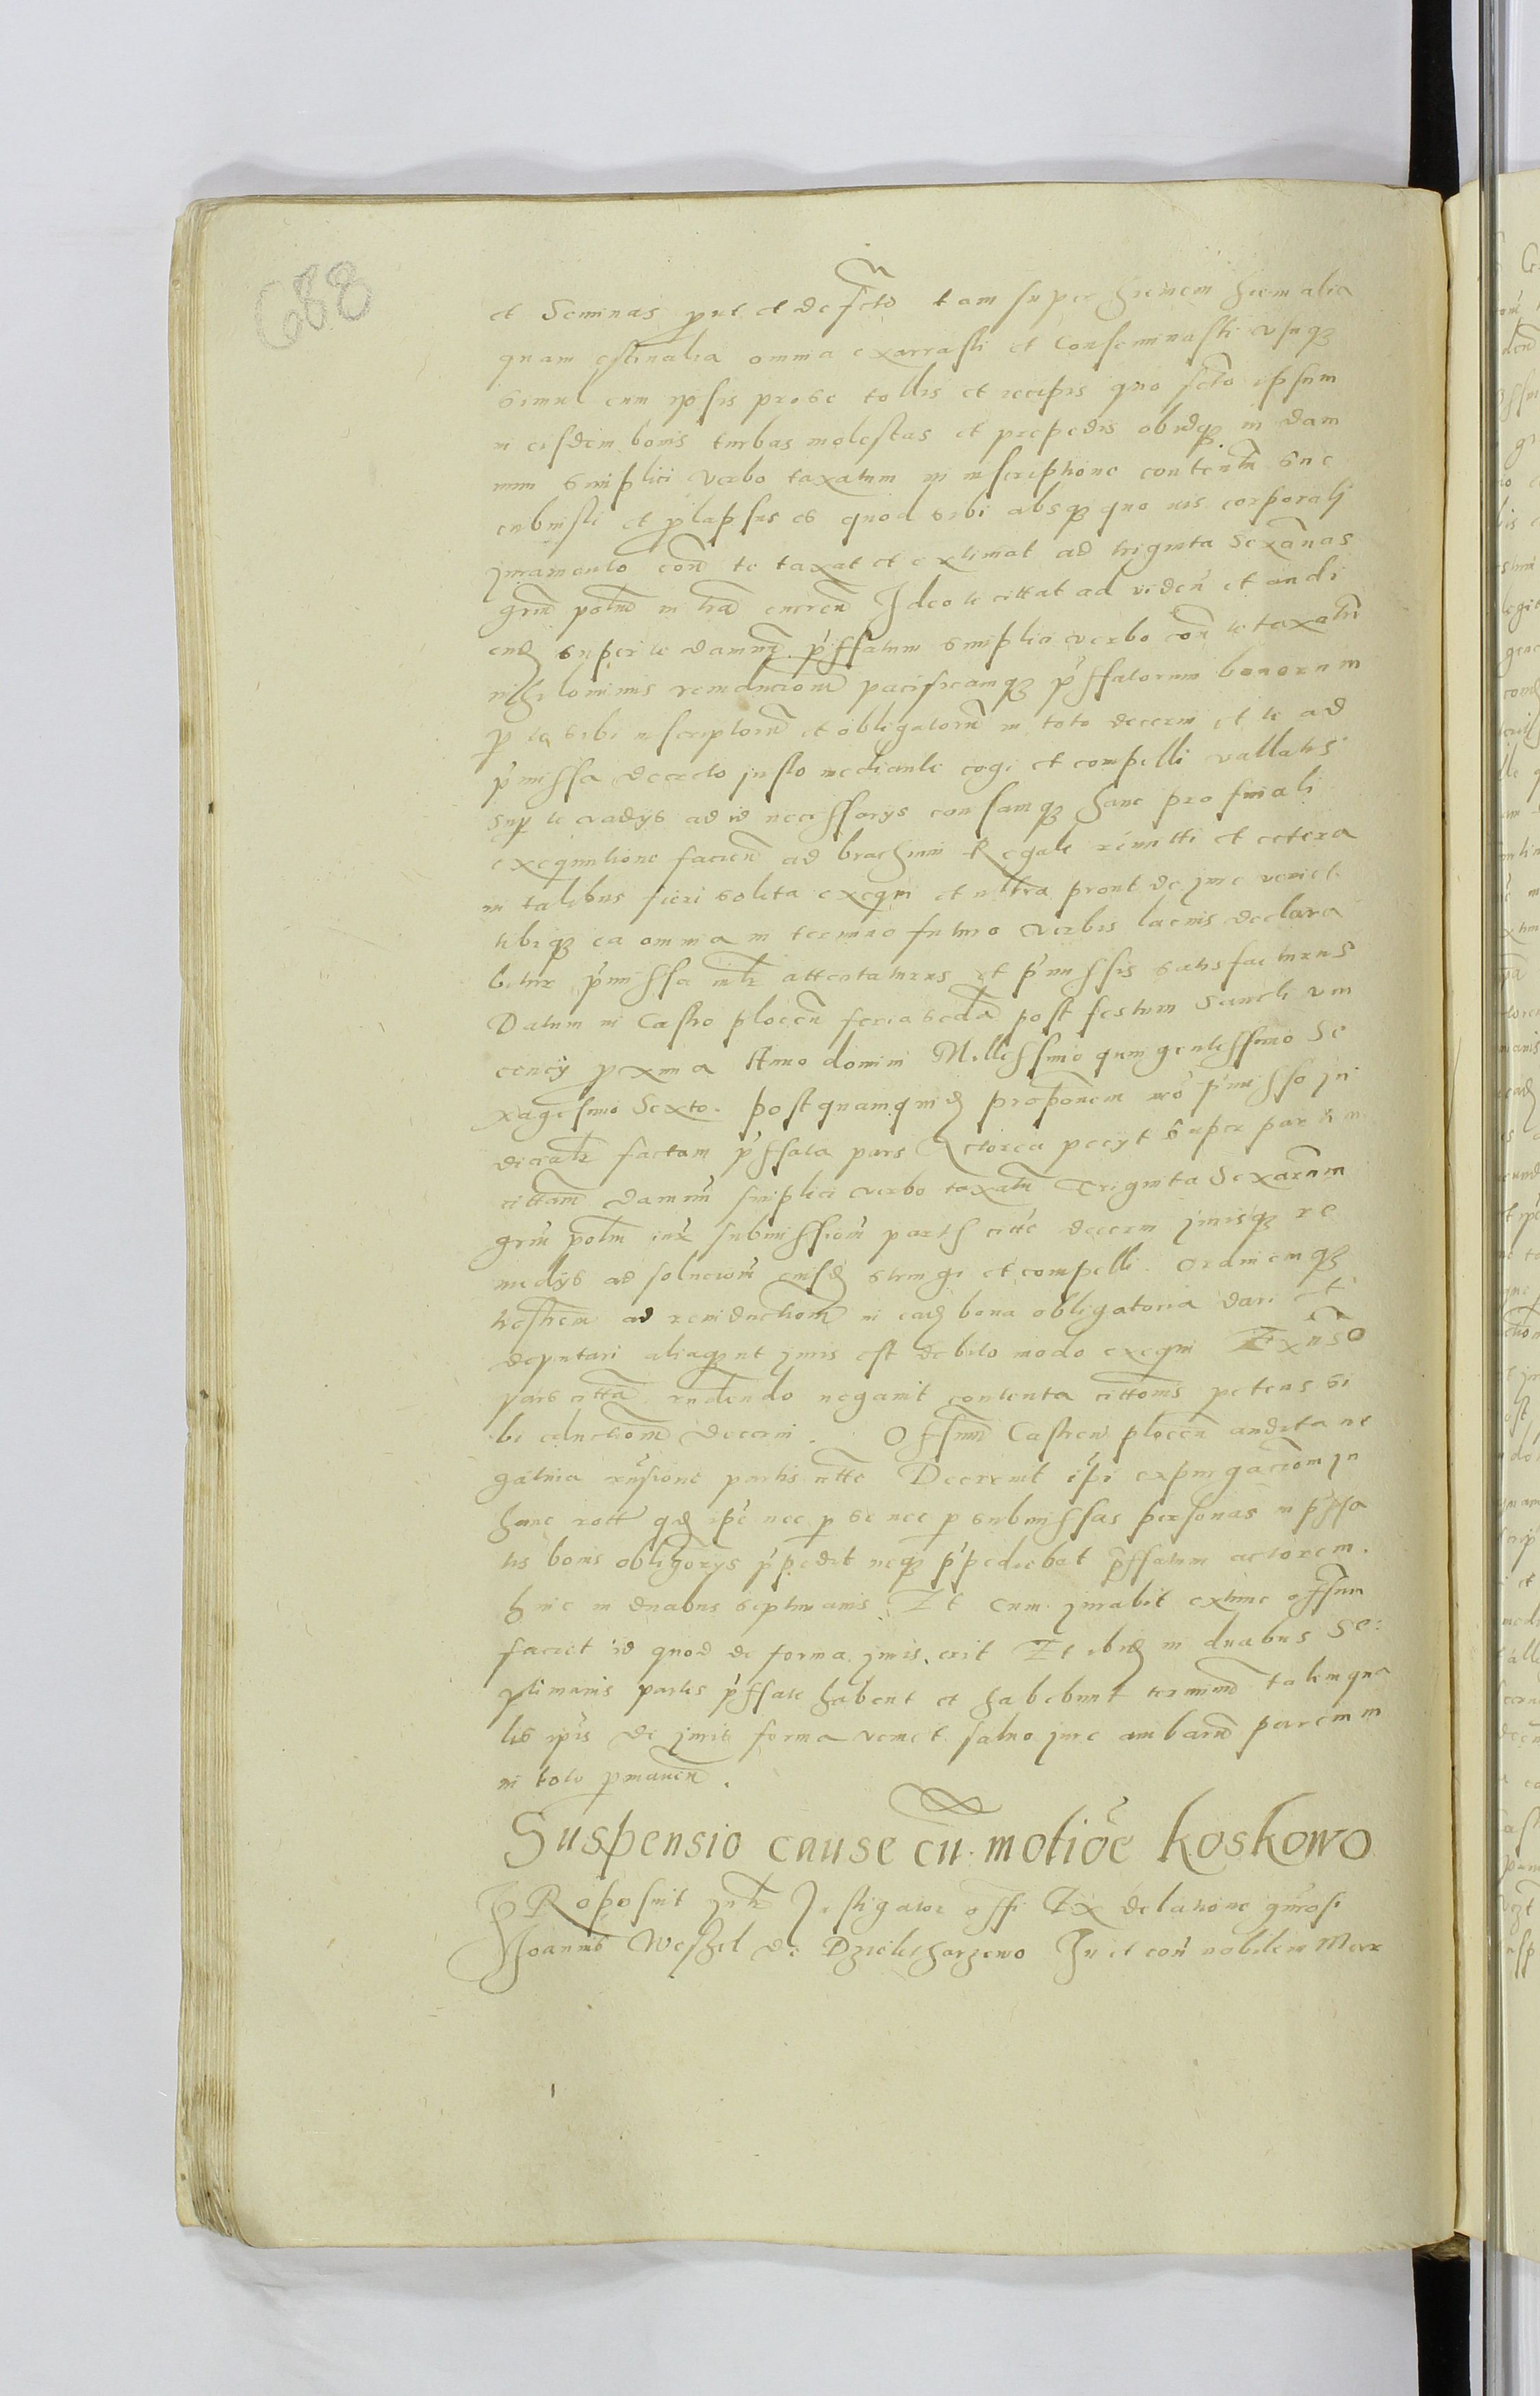 688
et Seminas prut et de fcto tam super hiemem hiemalia
quam estivalia omnia exarrasti et Conseminasti usuqz
simul cum ipsis pro se tollis et recipis quo fcto ipsum
in eisdem bonis turbas molestas et prepedis obidqz in dam
num simplici verbo taxatum in inscriptione contentu suc
cubuisti et plapsus es quod sibi absqz quo vis corporali
juramento con te taxat et extimat ad triginta Sexanas
grm polm in tra curren Ideo te cittat ad viden et audi
end super te damnu pffatum simplici verbo con te taxatu
nihilominus reinductione pacificamqz pffatorum bonorum
p te sibi inscriptoru et obligatoru in toto decerni et te ad
pmissa decreto justo mediante cogi et compelli vallatis
sup te vadys ad id necessarys causamqz hanc pro finali
exequutione facien ad brachium Regale remitti et cetera
in talibus fieri solita exequi et ultra prout de jure veniet
tibiqz ea omnia in termino futuro verbis lacius declara
bitur pmissa attentaturus et pmissis satisfacturus
Datum in Castro plocen feria scda post festum Sancti vin
cency pxima Anno domini Millessimo quingentessimo Se
xagesimo Sexto. postquamquid proponem mo pmisso ju
diciar factam pffata pars Actorea pecyt super partem
cittam damnu simplici verbo taxatu Triginta Sexarum
grm polm iux submissiom partis citte decerni jurisqz re
medys ad solucion eiusd stringi et compelli ordinemqz
trestem ad reinductiom in ead bona obligatoria dari et
deputari aliaqz ut juris est debito modo exequi Ex
pars citta rndendo negavit contenta cittonis petens si
bi eductiom decerni. Offium Castren plocen audita ne
gativa rnsione partis citte Decrevit ipi expurgaciom ju
hunc rott qd ipe nec p se nec p submissas personas in pffa
tis bonis obligorys ppedit neqz ppediebat pffatum actorem.
hinc in duabus septimanis Et cum jurabit extunc offium
faciet id quod de forma juris erit Et ibid in duabus Se:
ptimanis partes pffate habent et habebunt terminu talem qua
lis ipis de juris forma veniet salvo jure ambaru parcium
in toto pmanen.
Suspensio cause cu motioe koskowo
PRoposuit Jnstigator offi Ex delatione gnrosi
Joannis Weszel de Dzieletharzewo In et con nobilem Mar